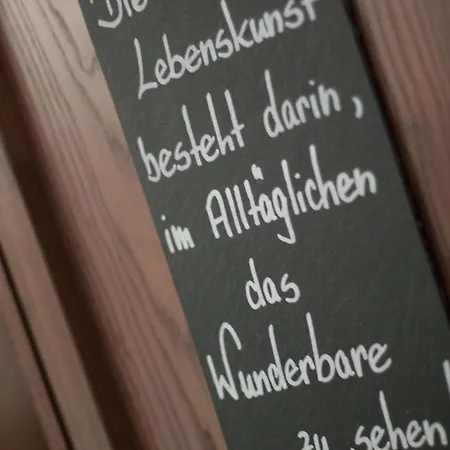 Die
Lebenskunst
besteht darin,
im Alltäglichen
das
Wunderbare
zu sehen